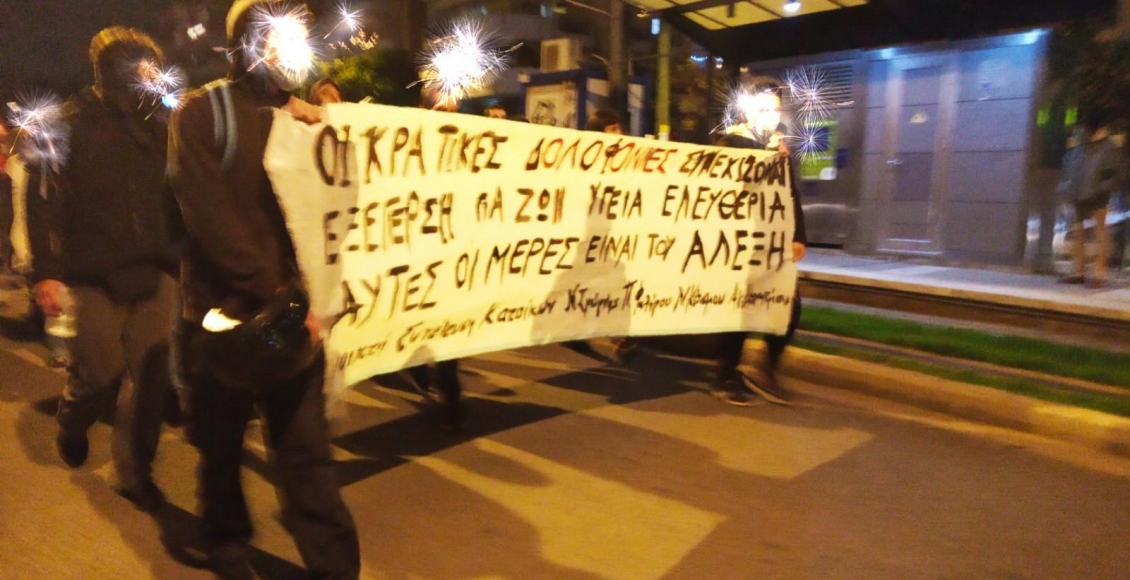 ΟΙ ΚΡΑΤΙΚΕΣ ΔΟΛΟΦΟΝΙΕΣ ΣΥΝΕΧΙΖΟΝΤΑΙ
ΕΞΕΓΕΡΣΗ ΓΙΑ ΖΩΗ ΥΓΕΙΑ ΕΛΕΥΘΕΡΙΑ
ΑΥΤΕΣ ΟΙ ΜΕΡΕΣ ΕΙΝΑΙ ΤΟΥ ΑΛΕΞΗ
Συνέλευση Κατοίκων Ν.Σμύρνης Π.Φαλήρου Ν.Κόσμου